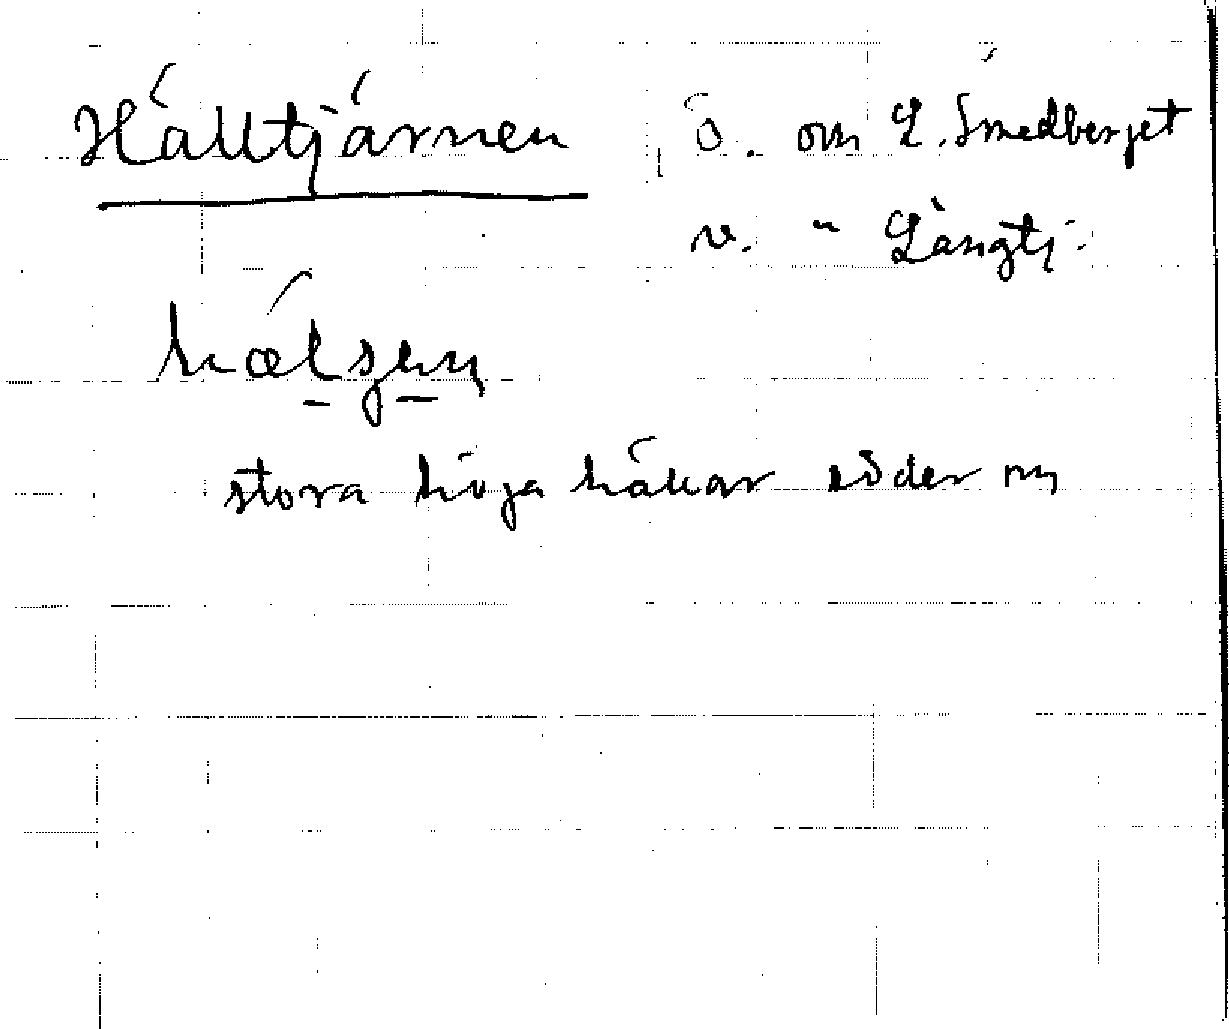 Hälltjärnen ö. om L. Smedberget
v. " Långtj.
hælʂæɳ
stora höga hällar söder om